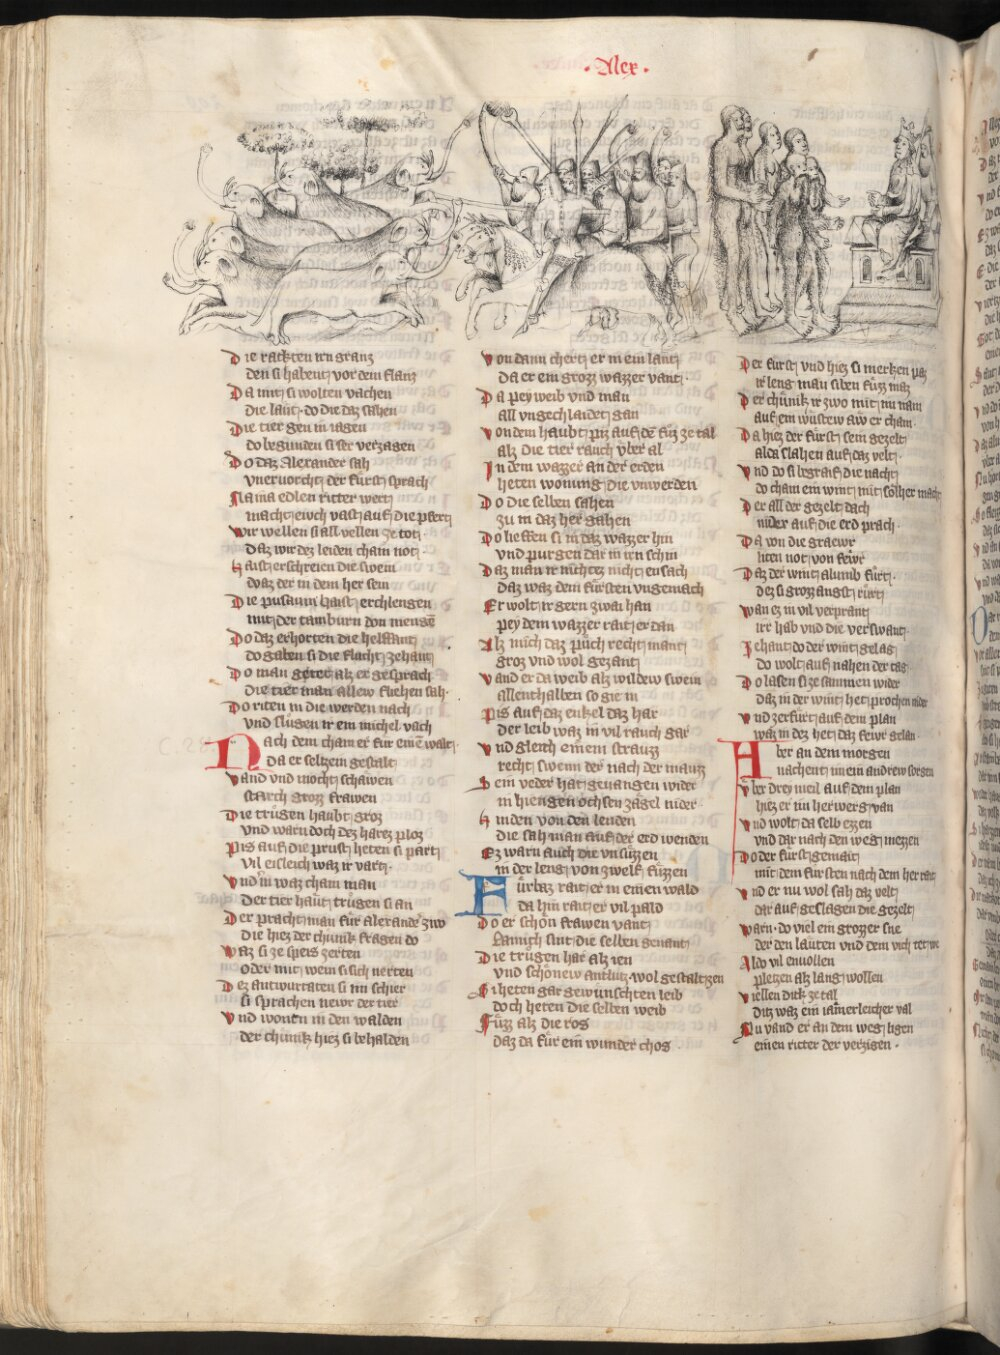 · Alex ·
Die rachten irn granz
den si habent vor dem flanz
Da mit si wolten vachen
die laut · do die daz sahen
Die tier gen in iagen
do begunden si ser verzagen
Do daz Alexander sah
vnervorcht der furst sprach
Nama edlen ritter wert
macht ewch vast auf die pfert
Wir wellen si all vellen ze tot
daz wir dez leiden cham not ·
Haist erschreien die swein
waz der in dem her sein
Die pusaun haist erchlengen
mit der tamburn don mengen
Do daz erhorten die helffant
do gaben si die flucht zehant
Do man getet alz er gesprach
die tier man allew fliehen sah ·
Do riten in die werden nach
vnd slugen ir em michel vach
Nach dem cham er fur eine walt
da er seltzein gestalt
Vand vnd mocht schawen
starch groz frawen
Die trugen haubt groz
vnd warn doch dez harez ploz
Pis auf die prust heten si part
vil eisleich waz ir vart ·
Vnd in waz cham man
der tier haut trugen si an
Der pracht man fur alexander zwo
die hiez der chunik fragen do
Waz si ze speis zerten
oder mit wem si sich nerten
Dez antwurtaten si im schier
si sprachen newr der tier
Vnd wonen in den walden
der chunik hiez si behalden
Von dann chert er in ein lant
da er ein groz wazzer vant ·
Da pey weib vnd man
all vngechlaidet gan
Von dem haubt piz auf de fuz ze tal
alz die tier rauch vber al
In dem wazzer an der erden
heten wonung die vnwerden
Do die selben sahen
zu in daz her gahen
Do lieffen si in daz wazzer hin
vnd purgen dar in irn schin
Daz man ir nichtez nicht ensach
daz waz dem fursten vngemach
Er wolt ir gern zwai han
pey dem wazzer rait er dan
Alz mich daz puch recht mant
groz vnd wol gezant
Vand er da weib alz wildew swein
allenthalben so gie in
Pis auf daz enkel daz har
der leib waz in vil rauch gar
Vnd gleich einem strauzz
recht swenn der nach der mauzz
Sein veder hat gevangen wider
in hiengen ochsen zagel nider
Hinden von den lenden
die sah man auf der erd wenden
Ez warn auch die vnsuzzen
in der leng von zwelf fuzzen
Furbaz rait er in einen wald
da hin rait er vil pald
Do er schon frawen vant
Lamich sint die selben genant
Die trugen har alz ien
vnd schonew antlutz wol gestaltzen
Si heten gar gewunschten leib
doch heten die selben weib
Fuzz alz die ros
daz da fur ein wunder chos
Der furst vnd hiez si merken paz
ir leng man siben fuzz maz
Der chunik ir zwo mit im nam
auf ein wustew aw er cham ·
Da hiez der furst sein gezelt
alda slahen auf daz velt ·
Vnd do si begraif die nacht
do cham ein wint mit solher macht
Der all der gezelt dach
nider auf die erd prach ·
Da von die graewr
liten not von fewr
Daz der wint alumb furt ·
dez si groz angst rurt
Wan ez in vil verprant
irr hab vnd die verswant
Zehant do der wint gelag
do wolt auf nahen der tag
Do lasen si ze sammen wider
daz in der wint het prochen nider
Vnd zerfurt auf dem plan
waz in dez het daz fewr gelan ·
Aber an dem morgen
nachent im ein andrew sorgen
Vber drey meil auf dem plan
hiez er im herwerg van
Vnd wolt da selb ezzen
vnd dar nach den weg mezzen
Do der furst gemait
mit dem fursten nach dem her rait
Vnd er nu wol sah daz velt
dar auf geslagen die gezelt
Warn · do viel ein grozzer sne
der den lauten vnd dem vich tet we
Aldo vil envollen
pletzen alz lang wollen
Viellen dick ze tal
ditz waz ein iamerleicher val
Nu vand er an dem weg ligen
einen ritter der verzigen ·